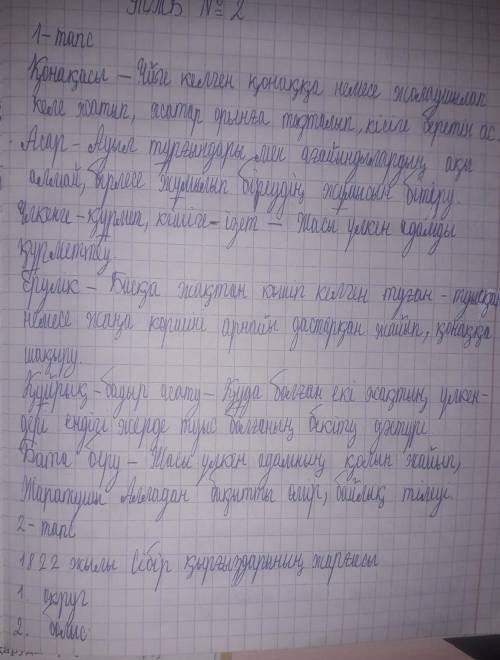 ТЖБ №2
1-тапс
Қонақасы – Үйге келген қонаққа немесе жолаушылап
келе жатып, жатар орынға тоқталып, кісіге беретін ас
Асар – Ауыл тұрғындары мен ағайындылардың ақы
алмай, бірлесе жұмылып біреудің жұмысын бітіру.
Үлкенге – құрмет, кішіге – ізет – Жасы үлкен адамды
құрметтеу.
Ерулік – Басқа жақтан көшіп келген туған-
немесе жаңа көршіге арнайы дастарқан жайып, қонаққа
шақыру.
Құйрық-бауыр асату – Құда болған екі жақтың үлкен-
дері ендігі жерде туыс болғанын бекіту дәстүрі
Бата беру – Жасы үлкен адамның қолын жайып,
Жаратушы Алладан бақытты өмір, байлық тілеуі.
2-тапс
1822 жылы Сібір қырғыздарының жарғысы
1. округ
2. болыс